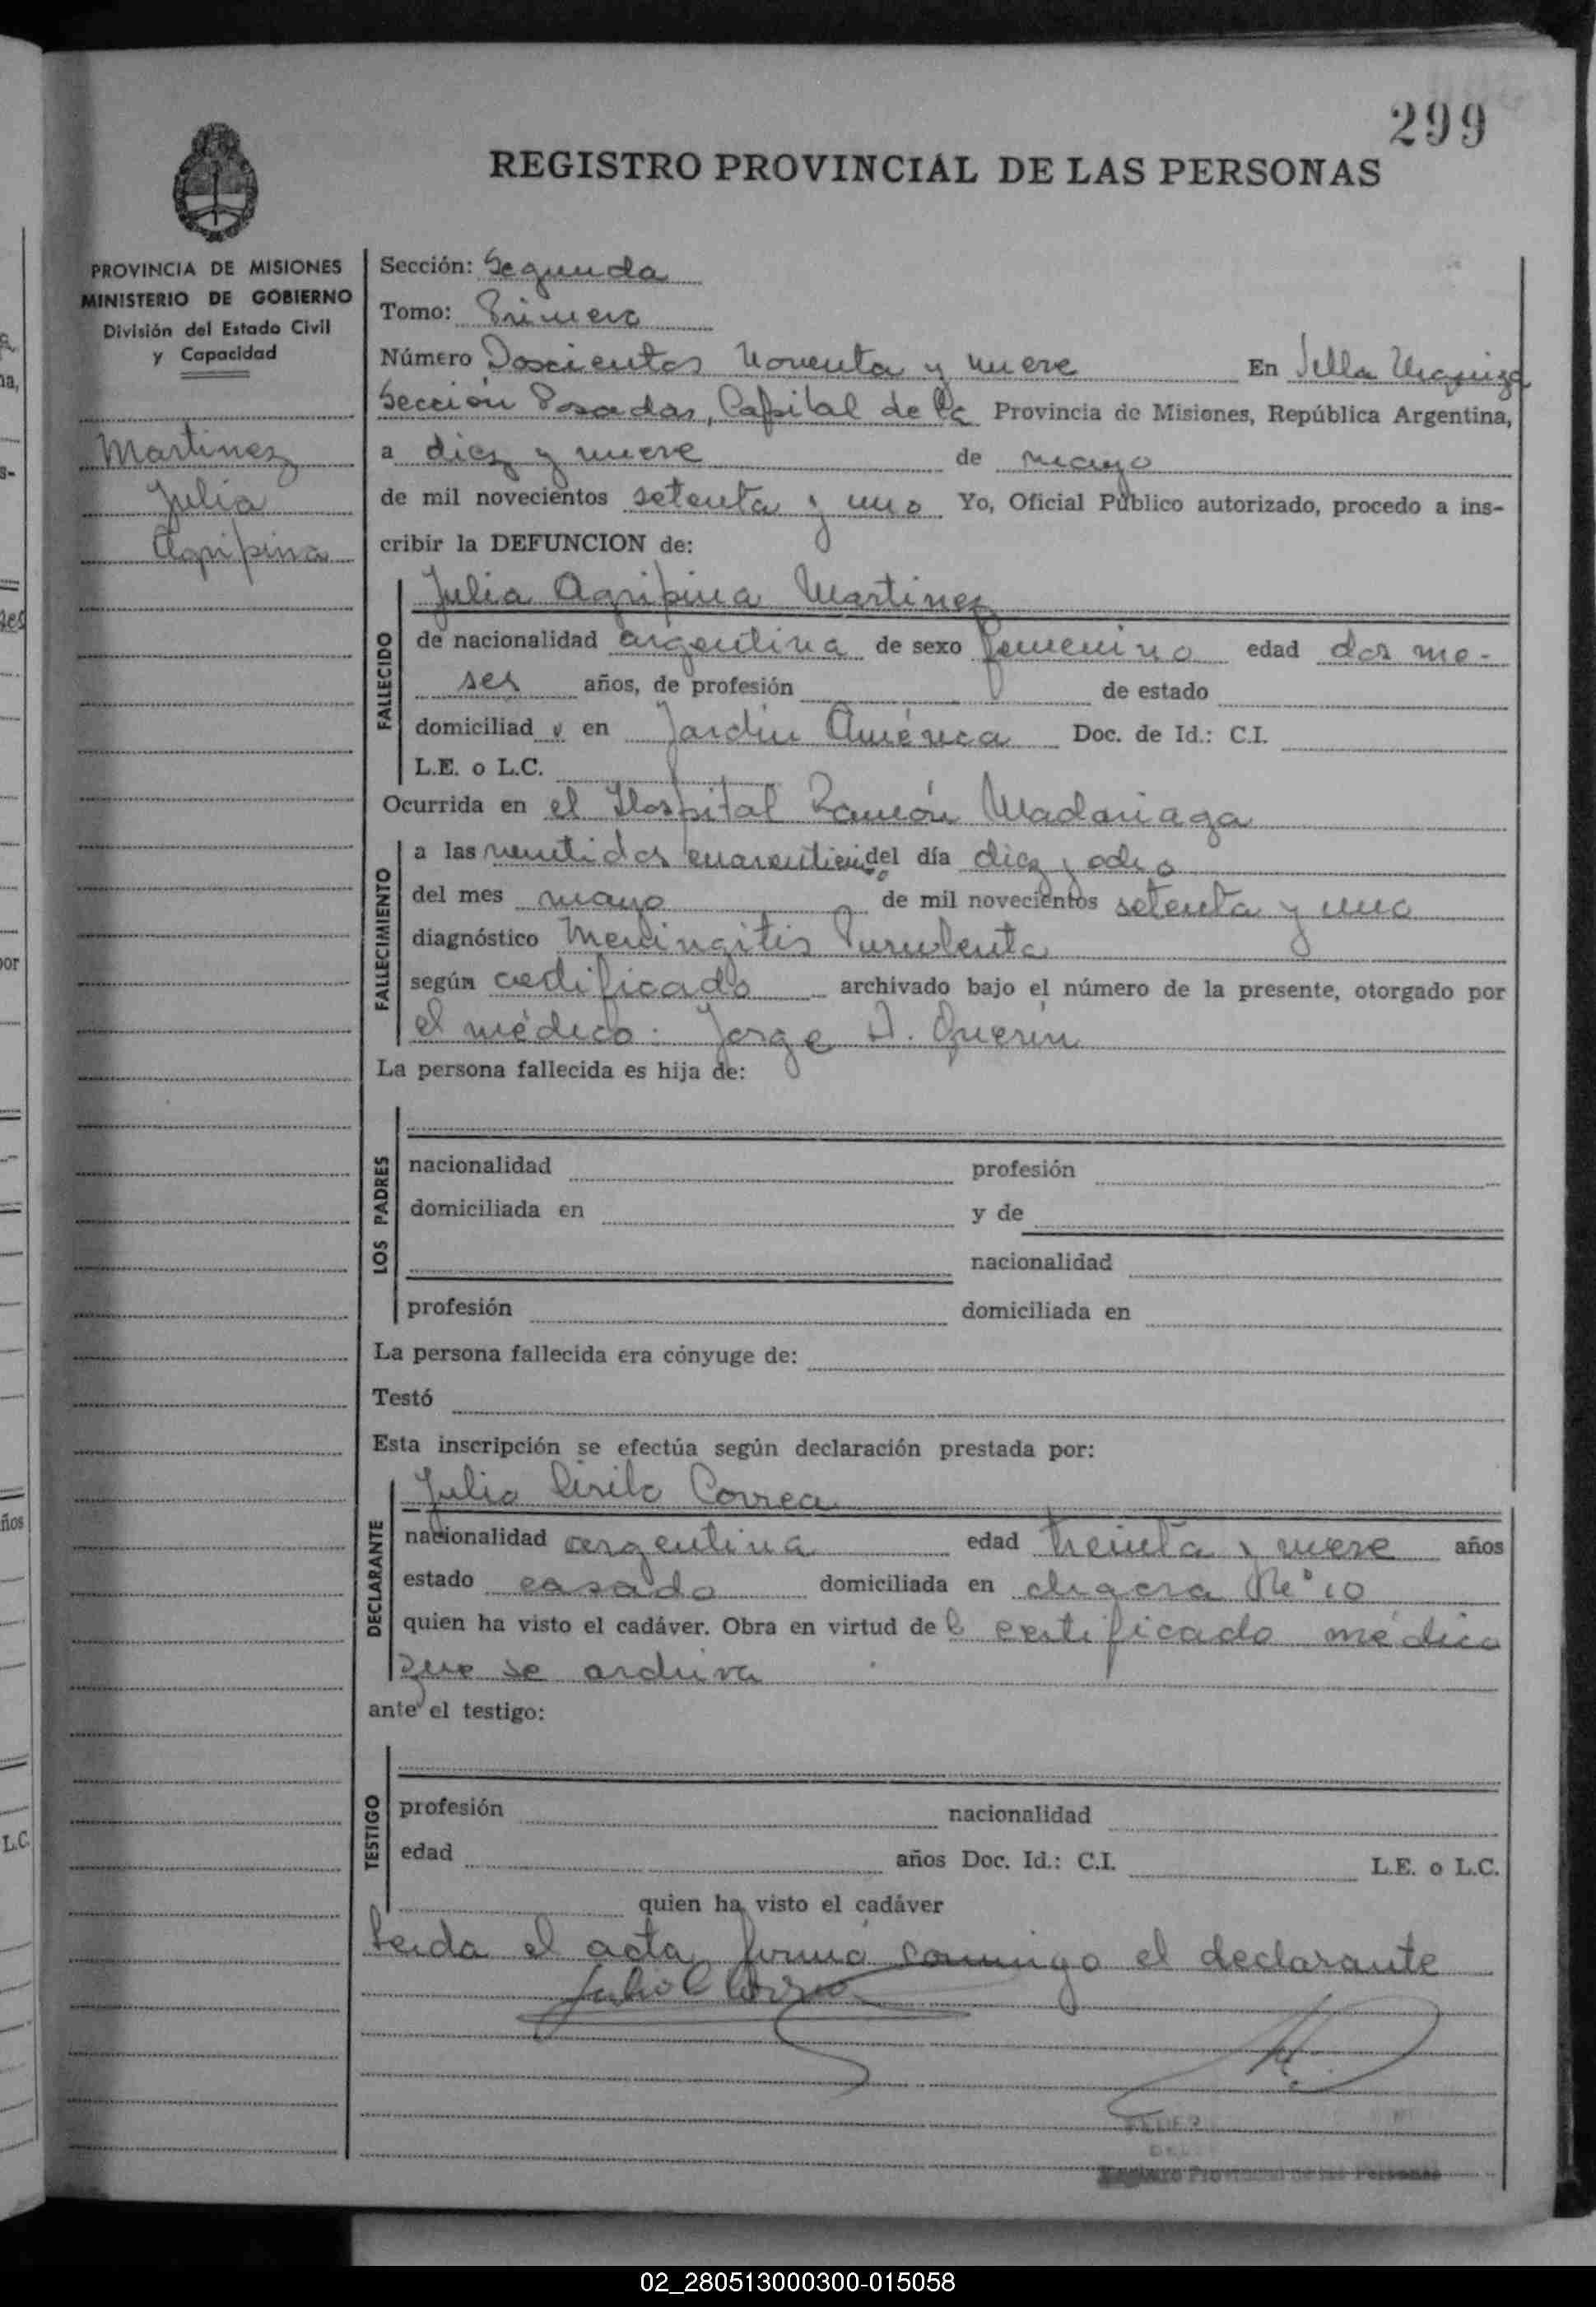 299
REGISTRO PROVINCIAL DE LAS PERSONAS
PROVINCIA DE MISIONES
MINISTERIO DE GOBIERNO
División del Estado Civil
y Capacidad
Martinez
Julia
Agripina
Sección: Segunda
Tomo: Primero
Número Doscientos Noventa y nueve En Villa Urquiza
Sección Posadas, Capital de la Provincia de Misiones, República Argentina,
a diez y nueve de mayo
de mil novecientos setenta y uno Yo, Oficial Público autorizado, procedo a ins-
cribir la DEFUNCION de:
FALLECIDO
Julia Agripina Martinez
de nacionalidad argentina de sexo femenino edad dos me-
ses años, de profesión de estado
domiciliad en Jardin América Doc. de Id.: C.I.
L.E. o L.C.
Ocurrida en el Hospital Ramón Madariaga
FALLECIMIENTO
a las del día diez y ocho
del mes mayo de mil novecientos setenta y uno
diagnóstico Meningitis Purulenta
según certificado archivado bajo el número de la presente, otorgado por
el médico: Jorge A. Guerin
La persona fallecida es hija de:
LOS PADRES
nacionalidad profesión
domiciliada en y de
nacionalidad
profesión domiciliada en
La persona fallecida era cónyuge de:
Testó
Esta inscripción se efectúa según declaración prestada por:
DECLARANTE
Julio Cirilo Correa
nacionalidad argentina edad treinta y nueve años
estado casado domiciliada en chacra Nº 10
quien ha visto el cadáver. Obra en virtud del certificado médico
que se archiva
ante el testigo:
TESTIGO
profesión nacionalidad
edad años Doc. Id.: C.I. L.E. o L.C.
quien ha visto el cadáver
Leida el acta, firma conmigo el declarante
Registro Provincial de las Personas
02_280513000300-015058